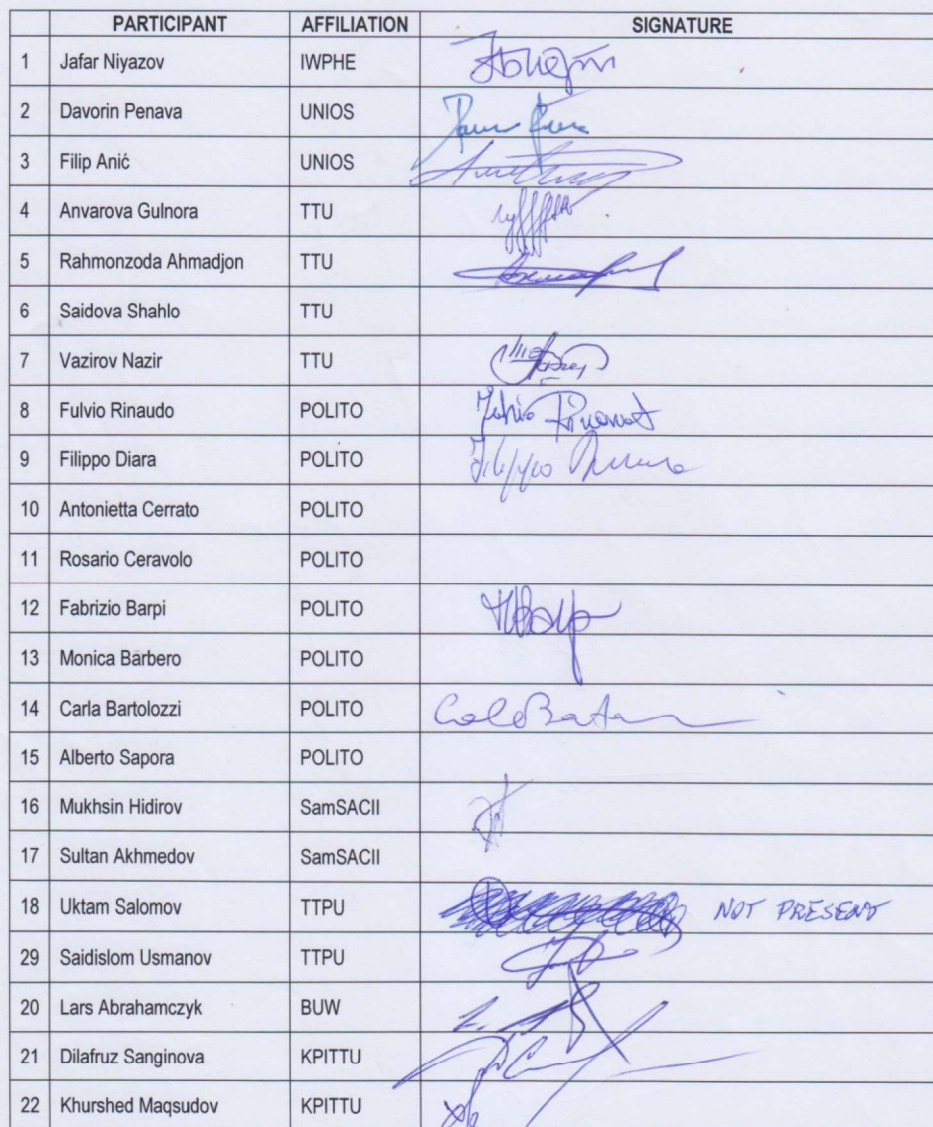 PARTICIPANT AFFILIATION SIGNATURE
1 Jafar Niyazov IWPHE
2 Davorin Penava UNIOS
3 Filip Anić UNIOS
4 Anvarova Gulnora TTU
5 Rahmonzoda Ahmadjon TTU
6 Saidova Shahlo TTU
7 Vazirov Nazir TTU
8 Fulvio Rinaudo POLITO
9 Filippo Diara POLITO
10 Antonietta Cerrato POLITO
11 Rosario Ceravolo POLITO
12 Fabrizio Barpi POLITO
13 Monica Barbero POLITO
14 Carla Bartolozzi POLITO
15 Alberto Sapora POLITO
16 Mukhsin Hidirov SamSACII
17 Sultan Akhmedov SamSACII
18 Uktam Salomov TTPU NOT PRESENT
29 Saidislom Usmanov TTPU
20 Lars Abrahamczyk BUW
21 Dilafruz Sanginova KPITTU
22 Khurshed Maqsudov KPITTU